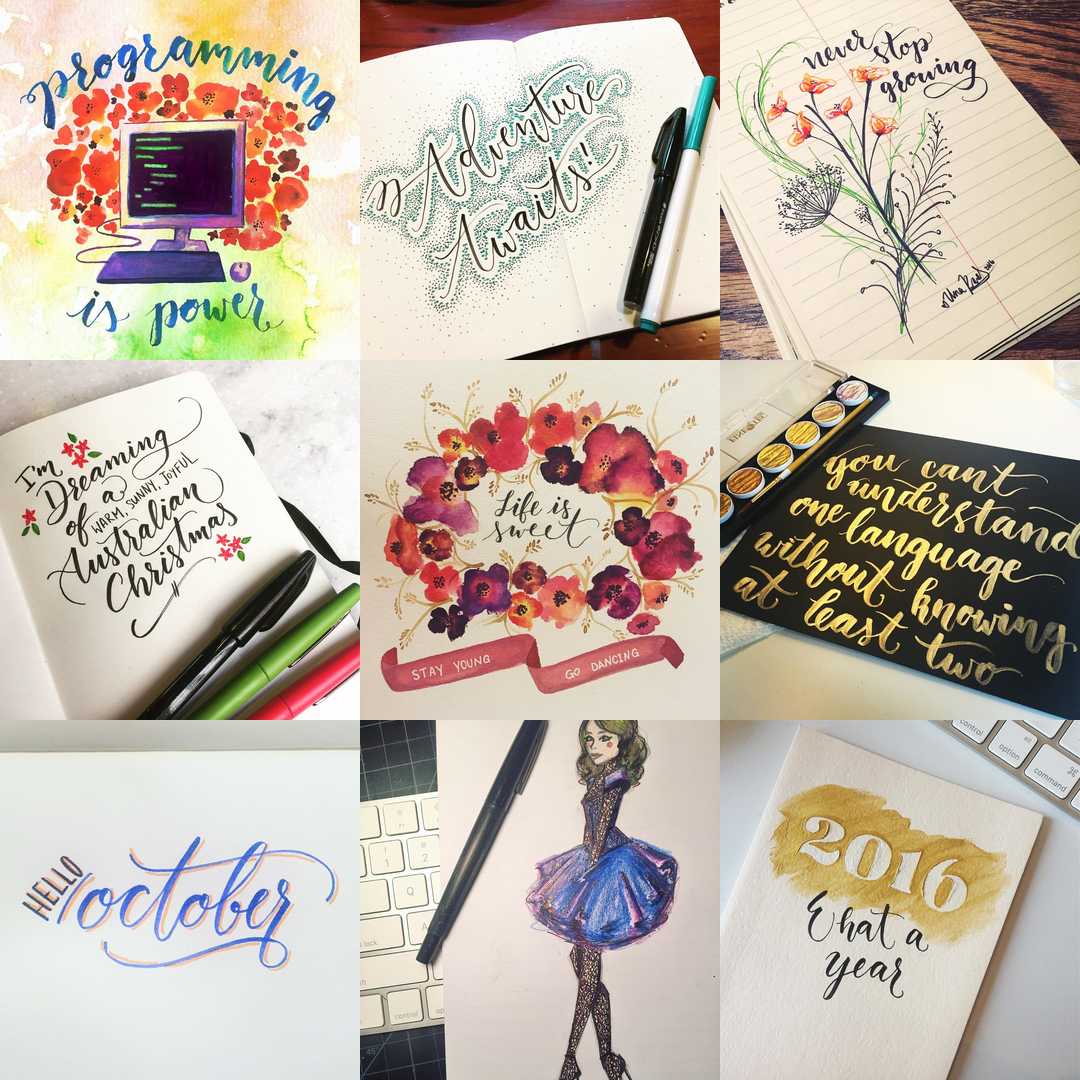 programming
is power
Adventure
Awaits!
never stop
growing
2016
I'm
Dreaming
of a
WARM, SUNNY, JOYFUL
Australian
Christmas
Life is
sweet
STAY YOUNG
GO DANCING
you cant
understand
one language
without knowing
at least two
HELLO
october
1
2
Q
control
option
command
control
option
command
2016
What a
year